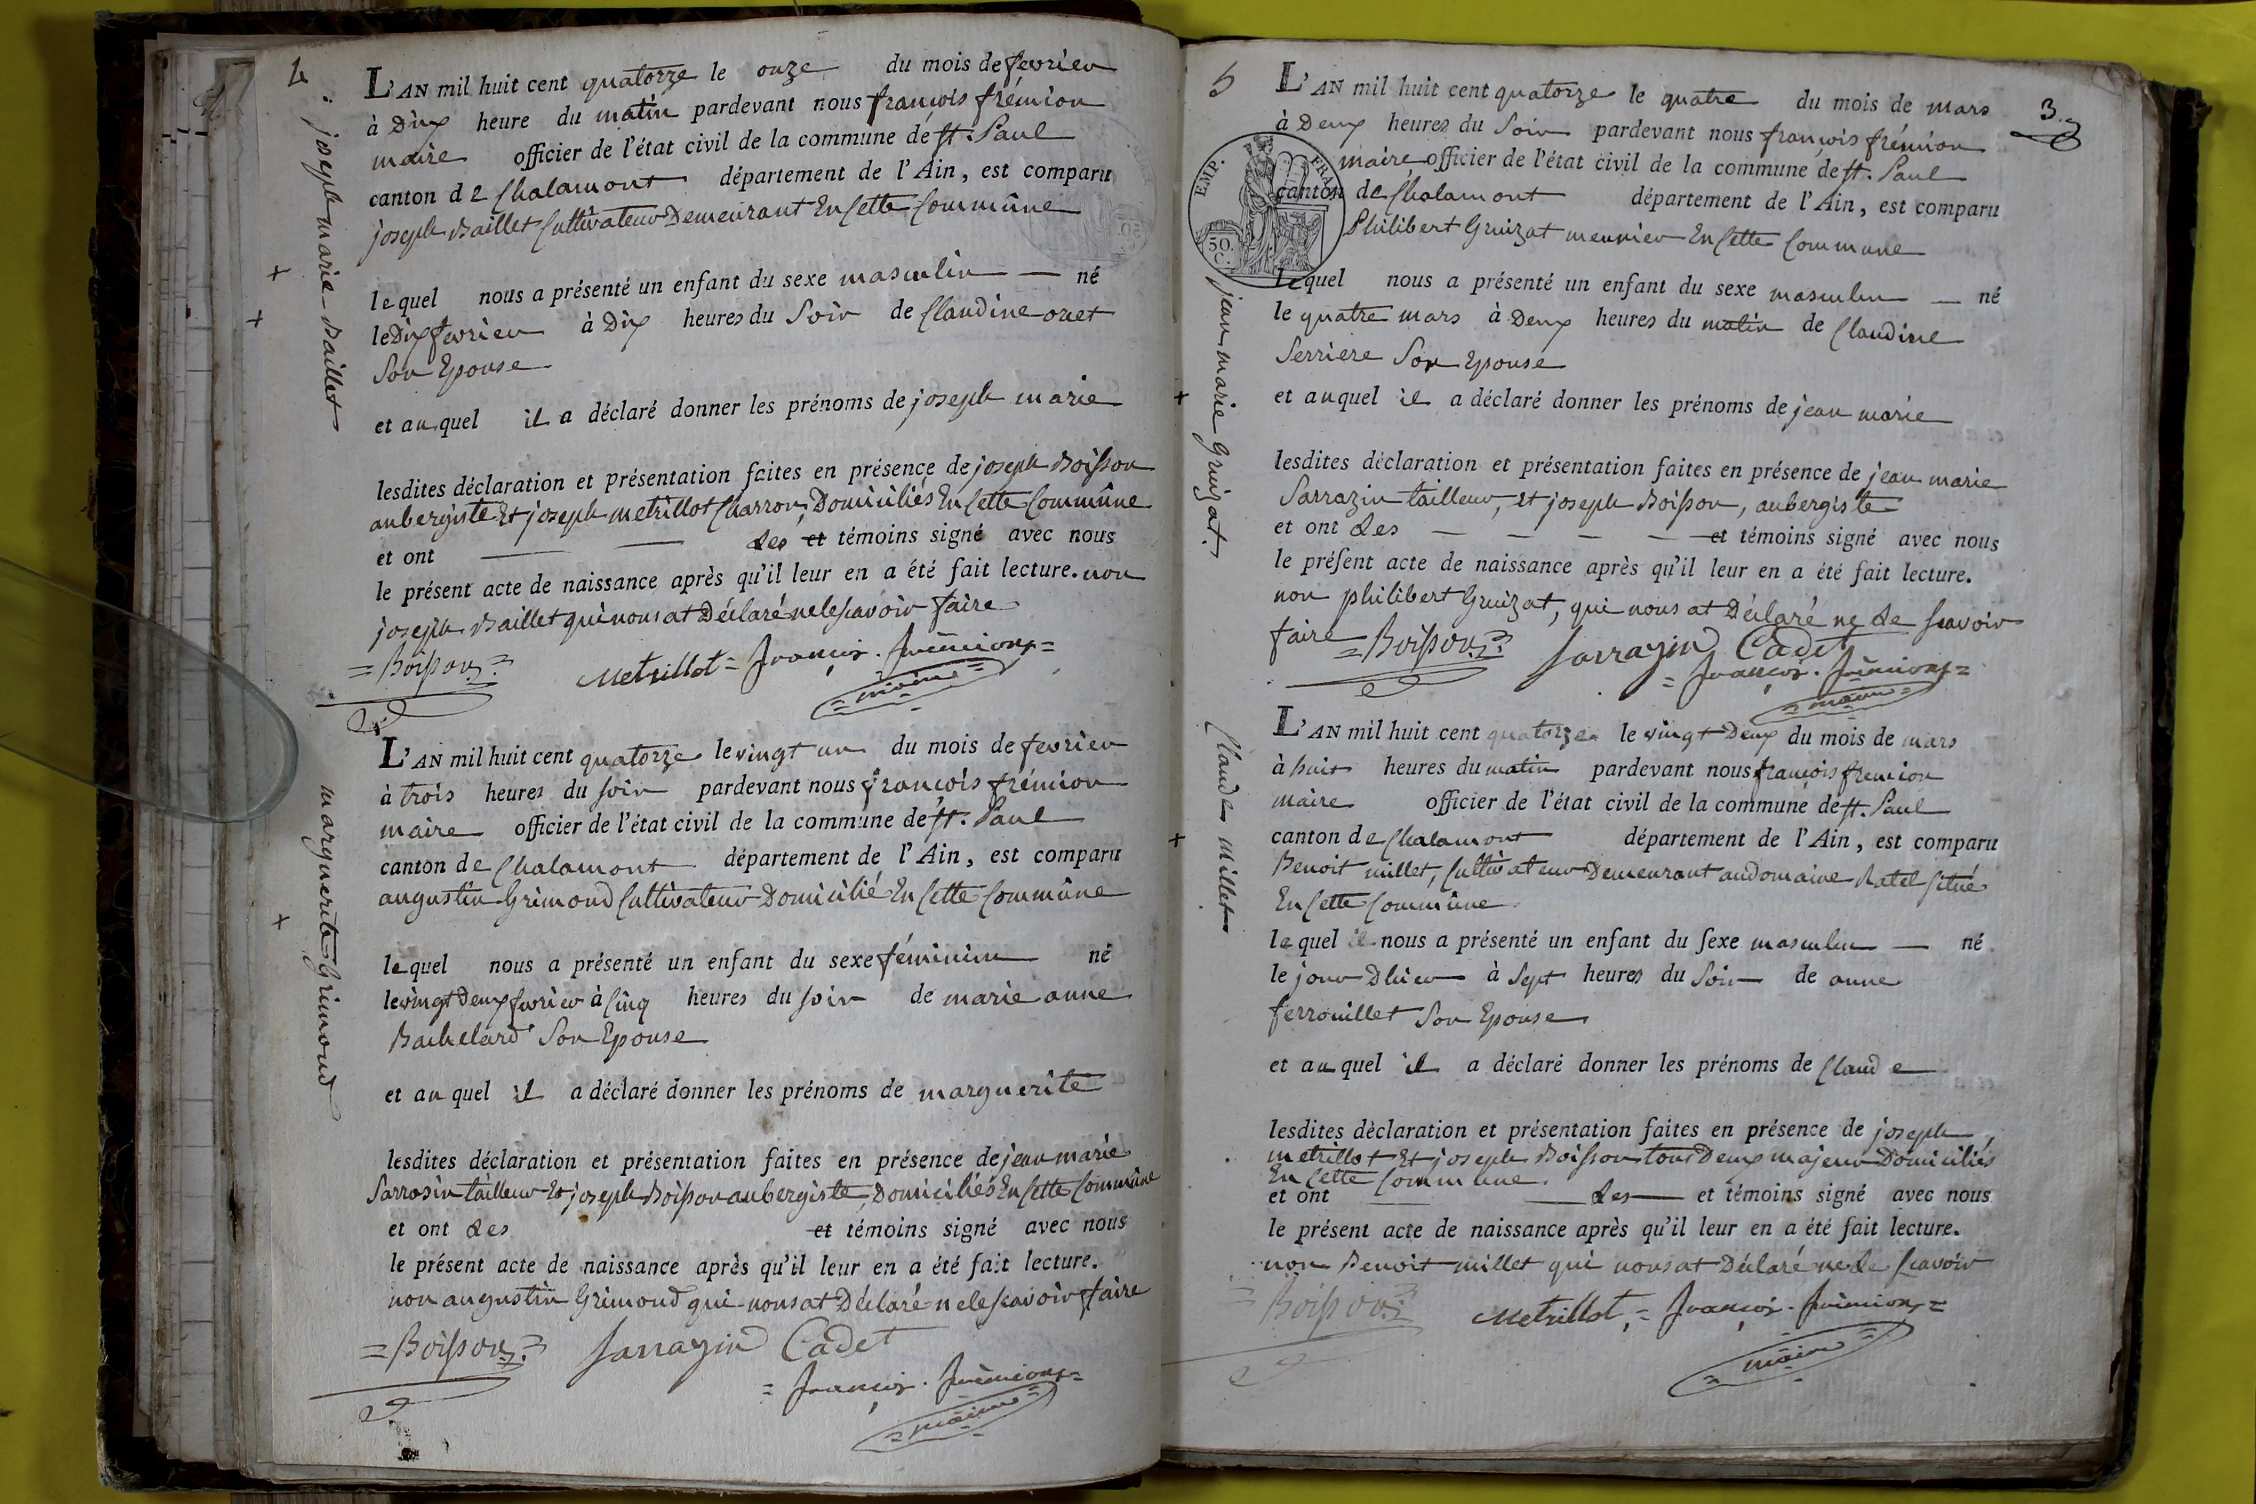 4
L'AN mil huit cent quatorze le onze du mois de fevrier
à Dix heure du matin pardevant nous françois frémion
maire officier de l'état civil de la commune de st. Paul
canton de Chalamont département de l'Ain, est comparu
joseph Baillet Cultivateur Demeurant En Cette Commûne
lequel nous a présenté un enfant du sexe masculin né
le Dix fevrier à Dix heures du Soir de Claudine ouet
Son Epouse
et auquel il a déclaré donner les prénoms de joseph marie
lesdites déclaration et présentation faites en présence de joseph Boisson
aubergiste Et joseph metrillot Charron, Domiciliés En Cette Commûne
et ont les et témoins signé avec nous
le présent acte de naissance après qu'il leur en a été fait lecture. non
joseph Baillet qui nous at Déclaré ne le scavoir faire
= Boisson =
Metrillot = françois . frémion =
= maire =
joseph marie Baillet
L'AN mil huit cent quatorze le vingt un du mois de fevrier
à trois heures du soir pardevant nous françois frémion
maire officier de l'état civil de la commune de st. Paul
canton de Chalamont département de l'Ain, est comparu
augustin Grimond Cultivateur Domicilié En Cette Commûne
lequel nous a présenté un enfant du sexe féminin né
le vingt Deux fevrier à Cinq heures du soir de marie anne
Bachelard Son Epouse
et auquel il a déclaré donner les prénoms de marguerite
lesdites déclaration et présentation faites en présence de jean marie
Sarrosin tailleur Et joseph Boisson aubergiste, Domiciliés En Cette Commûne
et ont les et témoins signé avec nous
le présent acte de naissance après qu'il leur en a été fait lecture.
non augustin Grimond qui nous at Déclaré ne le scavoir faire
= Boisson =
Sarrazin Cadet
= françois . frémion =
= maire =
marguerite Grimond
5
3
L'AN mil huit cent quatorze le quatre du mois de mars
à Deux heures du Soir pardevant nous françois frémion
maire officier de l'état civil de la commune de st. Paul
canton de Chalamont département de l'Ain, est comparu
Philibert Gruizat meunier En Cette Commune
EMP. FRA
50.
C.
lequel nous a présenté un enfant du sexe masculin né
le quatre mars à Deux heures du matin de Claudine
Serriere Son Epouse
et auquel il a déclaré donner les prénoms de jean marie
lesdites déclaration et présentation faites en présence de jean marie
Sarrazin tailleur, et joseph Boisson, aubergiste
et ont les et témoins signé avec nous
le présent acte de naissance après qu'il leur en a été fait lecture.
non philibert Gruizat, qui nous at Déclaré ne le scavoir
faire
= Boisson =
Sarrazin Cadet
= françois . frémion =
= maire =
jean marie Gruizat.
L'AN mil huit cent quatorze le vingt Deux du mois de mars
à huit heures du matin pardevant nous françois fremion
maire officier de l'état civil de la commune de st. Paul
canton de Chalamont département de l'Ain, est comparu
Benoit millet, Cultivateur Demeurant au domaine Ratel Situé
En Cette Commûne
lequel il nous a présenté un enfant du sexe masculin né
le jour Dhier à Sept heures du Soir de anne
ferrouillet Son Epouse
et auquel il a déclaré donner les prénoms de Claude
lesdites déclaration et présentation faites en présence de joseph
metrillot Et joseph Boisson tous Deux majeur Domiciliés
En Cette Commune.
et ont les et témoins signé avec nous
le présent acte de naissance après qu'il leur en a été fait lecture.
non Benoit millet qui nous at Déclaré ne le scavoir
Boisson
Metrillot = françois . frémion =
= maire =
Claude Millet